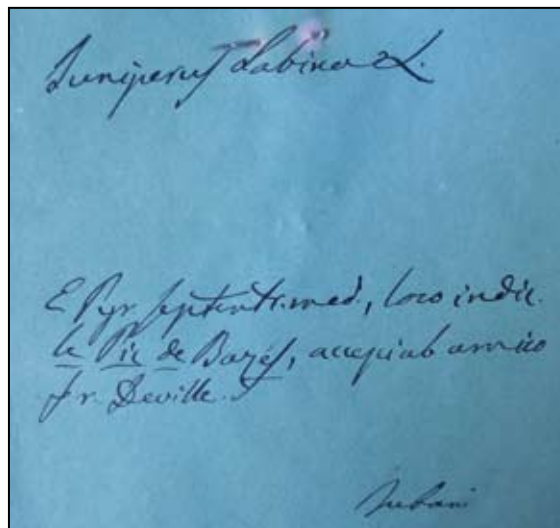 Juniperus Sabina L.
E Pyr. septentr. med., loco indic.
le Pic de Bazès, accepi ab amico
fr. Deville.
Bubani